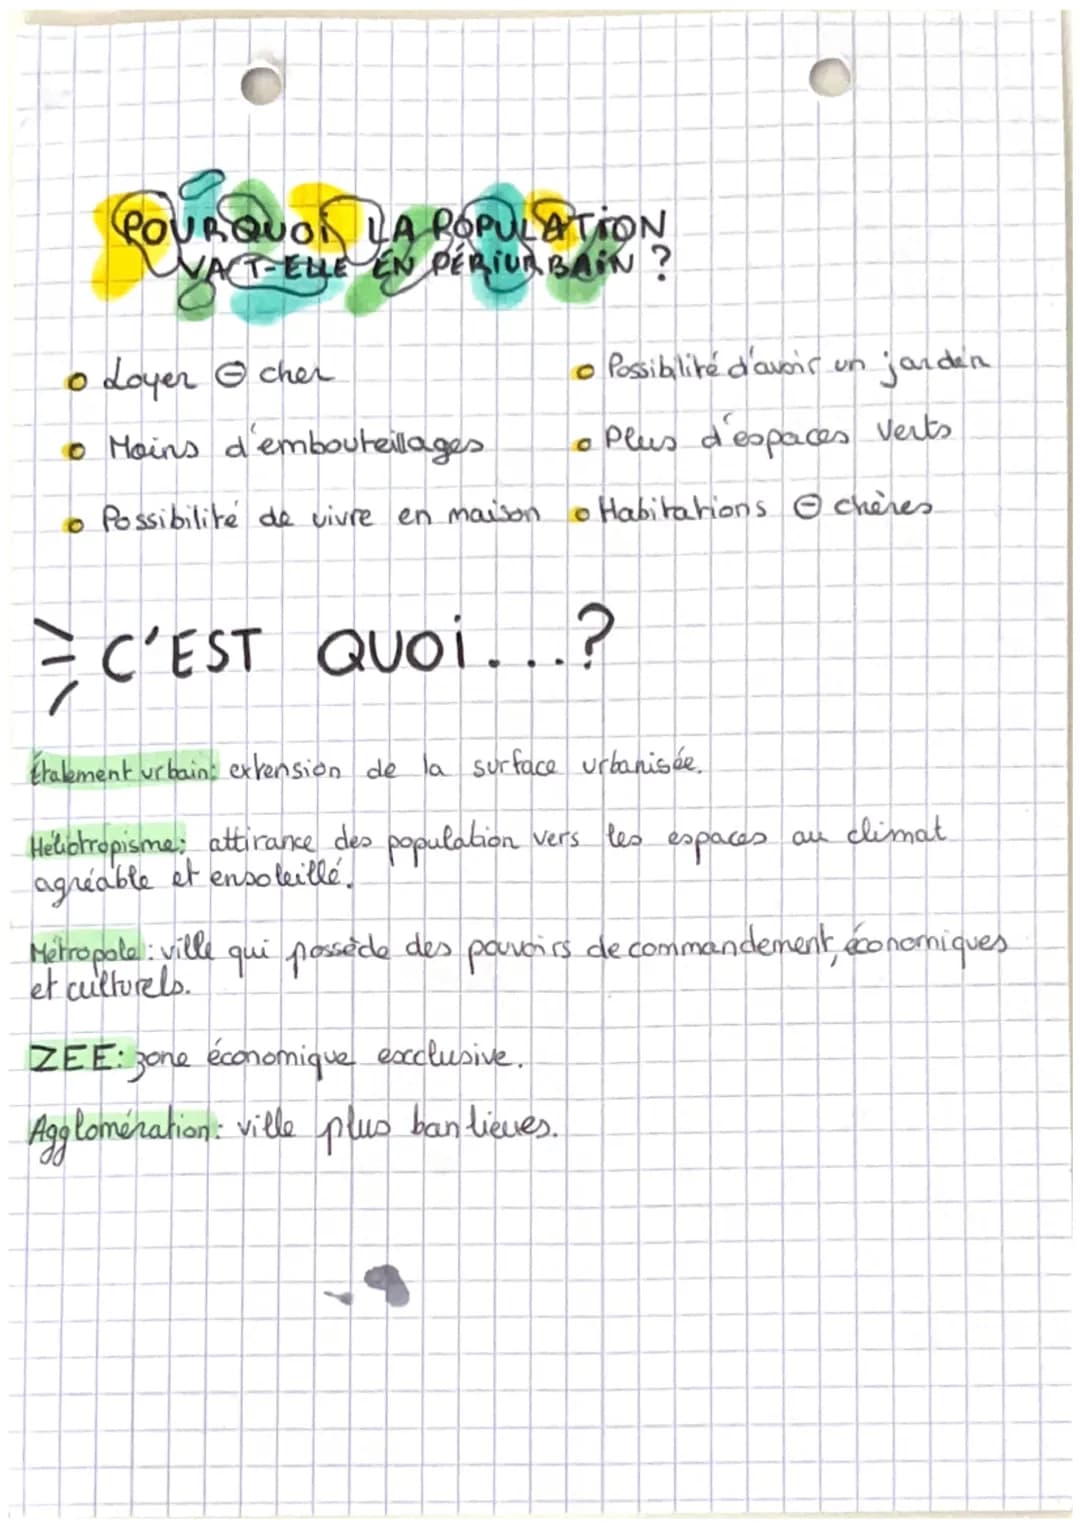 POURQUOI LA POPULATION
VA T-ELLE EN PÉRIURBAIN ?
Loyer ⊖ cher
Moins d'embouteillages
Possibilité de vivre en maison
Possibilité d'avoir un jardin
Plus d'espaces verts
Habitations ⊖ chères
C'EST QUOI...?
Étalement urbain: extension de la surface urbanisée.
Héliotropisme: attirance des population vers les espaces au climat
agréable et ensoleillé.
Métropole: ville qui possède des pouvoirs de commandement, économiques
et culturels.
ZEE: zone économique exclusive.
Agglomération: ville plus banlieues.